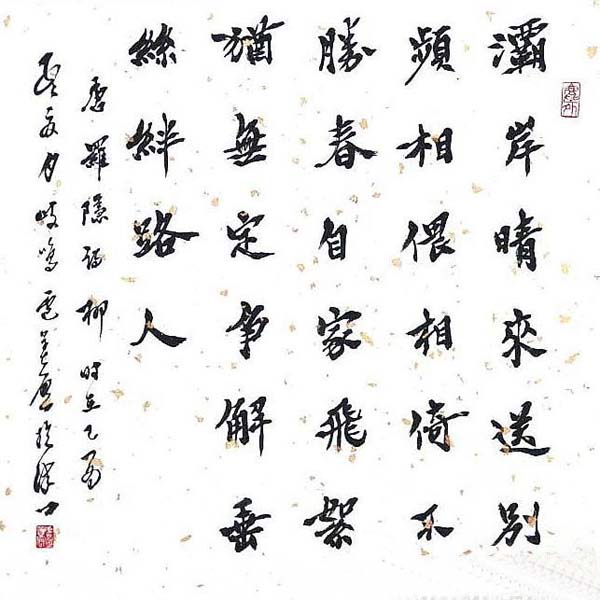 灞岸晴來送別
頻相偎相倚不
勝春自家飛絮
猶無定爭解垂
絲絆路人
唐羅隱詩柳時在乙酉
夏月岐鳴於漢口